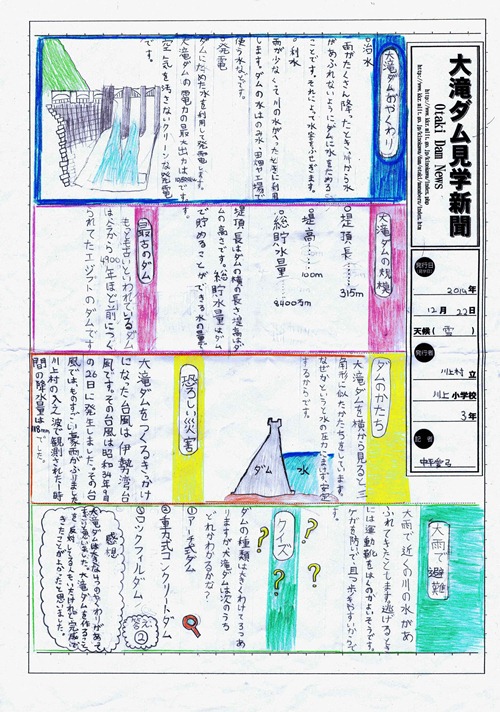 大滝ダム見学新聞
Otaki Dam News
発行日
2014年
12月22日
天候(雪)
発行者
川上村立
川上小学校
3年
記者
大滝ダムのやくわり
○治水
雨がたくさん降ったとき、川から水
があふれないようにダムに水をためる
ことです。それによって水害をふせぎます。
○利水
雨が少なくて川の水がへったときに利用
します。ダムの水はのみ水・田畑や工場で
使う水などです。
○発電
ダムにためた水を利用して発電します。
大滝ダムの電力の最大出力は
空気を汚さないクリーンな発電
です。
大滝ダムの規模
○堤頂長……315m
○堤高……100m
○総貯水量……8400万m
堤頂長はダムの横の長さ、堤高はダ
ムの高さです。総貯水量はダム
で貯めることができる水の量です。
最古のダム
もっとも古いといわれているダム
は今から4900年ほど前につく
られてたエジプトのダムです
ダムのかたち
大滝ダムを横から見ると三
角形に似たかたちをしています。
なぜかというと水の圧力にまけず、安定
するからです。
ダム
水
恐ろしい災害
大滝ダムをつくるきっかけ
になった台風は伊勢湾台
風です。その台風は昭和34年9月
の26日に発生しました。その台
風ではものすごい豪雨がふりました。
川上村の入之波で観測された1時
間の降水量は118mmでした。
大雨で避難
大雨で近くの川の水があ
ふれてきたとします。逃げるとき
には運動靴をはくのがよいそうです。
ケガを防いで、且つ歩きやすいからで
す。
クイズ
ダムの種類は大きくわけて3つあ
りますが大滝ダムは次のうち
どれかわかるかな？
①アーチ式ダム
②重力式コンクリートダム
③ロックフィルダム
答え②
感想